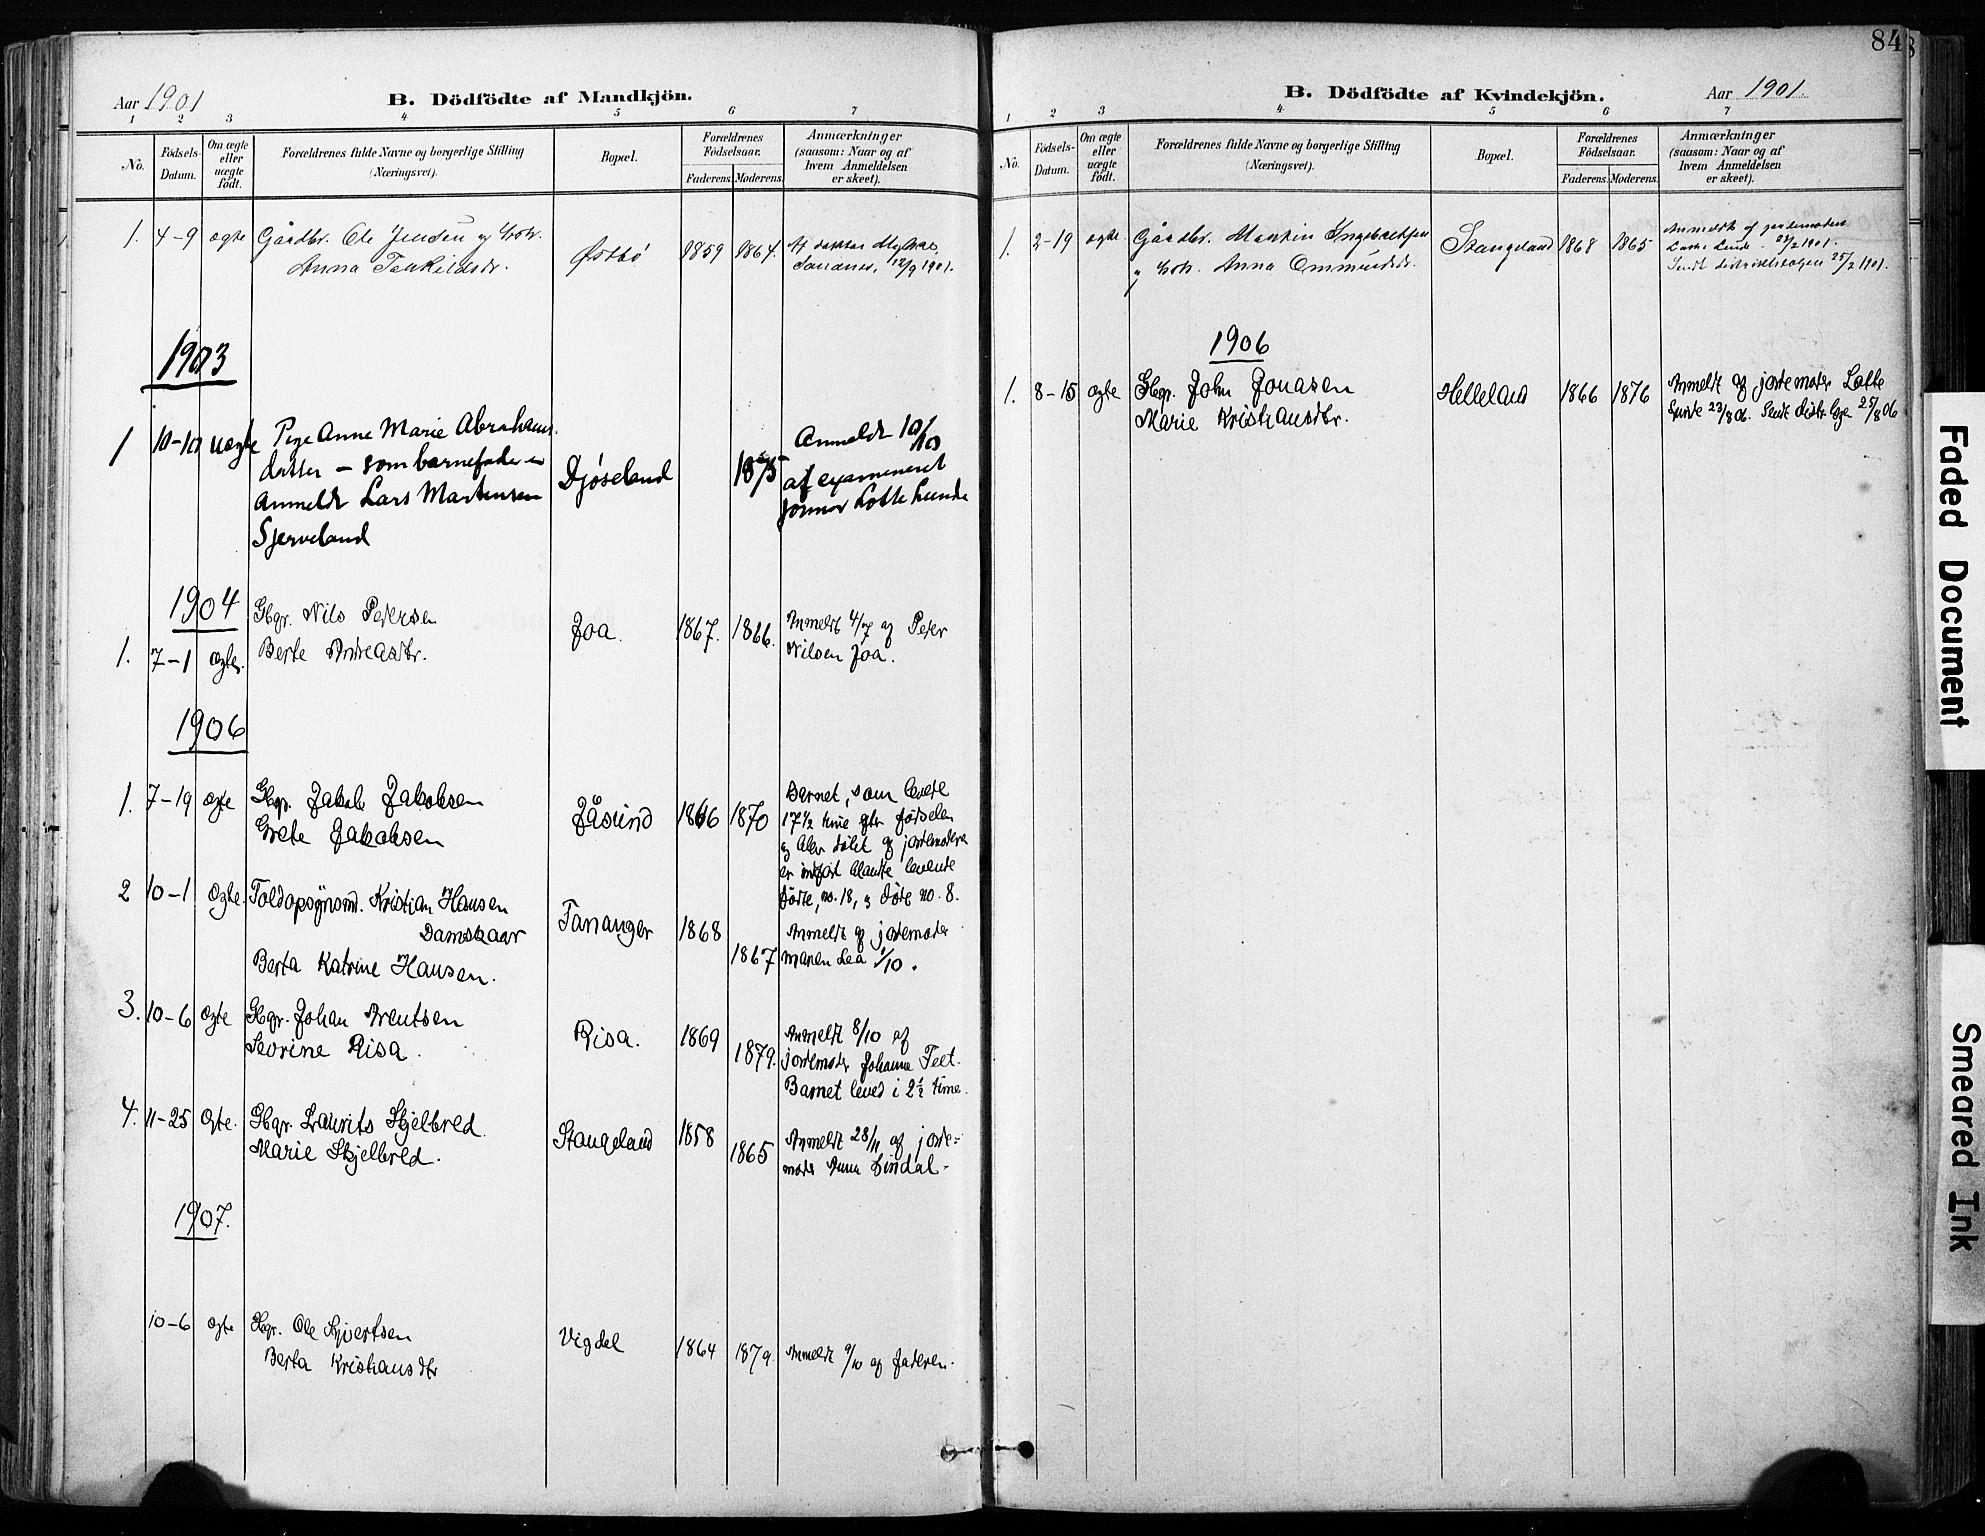 Aar 1901
B. Dödfödte af Mandkjön.
1 2 3 4 5 6 7
No. Födsels-Datum. Om ægte eller uægte födt. Forældrenes fulde Navne og borgerlige Stilling (Næringsvei). Bopæl. Forældrenes Födselsaar. Faderens. Moderens. Anmærkninger (saasom: Naar og af hvem Anmeldelsen er skeet).
1. 4-9 ægte Gårdbr. Ole Jensen og hstr. Østbø 1859 1864. Af doktor
Anna Torkildsdr. Sandnes, 12/9 1901.
1903
1 10-10 uægte Pige Anne Marie Abrahams- Djøseland 1875 Anmeldt 10/10
datter – som barnefader er af examineret
Anmeldt Lars Martensen jormor Lotte Lunde
Sjerveland
1904
1. 7-1 ægte. Gbgr. Nils Pedersen Joa. 1867. 1866. Anmeldt 4/7 af Peder
Berte Andreasdtr. Nilsen Joa.
1906
1. 7-19 ægte Gbgr. Jakob Jakobsen Jåsund 1866 1870 Barnet, som levede
Grete Jakobsen 17 1/2 time eftr fødselen
og blev døbt af jordemoderen
er indført blandt levende
fødte, no. 18, og døde no. 8.
2 10-1 ægte. Toldopsynsmd. Kristian Hansen Tananger 1868 1867 Anmeldt af jordemoder
Damskaar Maren Lea 1/10.
Berta Katrine Hansen.
3. 10-6 ægte Gbgr. Johan Arentsen Risa. 1869 1879. Anmeldt 8/10 af
Sevrine Risa. jordemoder Johanne Teet.
Barnet leved i 2 1/2 time.
4. 11-25 ægte. Gbgr. Laurits Skjelbred. Stangeland 1858 1865 Anmeldt 28/11 af jorde=
Marie Skjelbred. moder Anna Lindal-
1907.
10-6 ægte Gbgr. Ole Sjvertsen Vigdel 1864 1879. Anmeldt 9/10 af faderen.
Berta Kristiansdtr
84
B. Dödfödte af Kvindekjön.
Aar 1901.
1 2 3 4 5 6 7
No. Födsels-Datum. Om ægte eller uægte födt. Forældrenes fulde Navne og borgerlige Stilling (Næringsvei). Bopæl. Forældrenes Födselsaar. Faderens. Moderens. Anmærkninger (saasom: Naar og af hvem Anmeldelsen er skeet).
1. 2-19 ægte. Gårdbr. Martin Ingebretsen Stangeland 1868 1865 Anmeldt af jordemoder
og hstr. Anna Ommundsdr. Lotte Lunde 23/2 1901.
Sendt distriktslægen 25/2 1901.
1906
1. 8-15 ægte Gbgr. John Jonasen Helleland 1866 1876 Anmeldt af jordemoder Lotte
Marie Kristiansdtr. Lunde 23/8 06. Sendt distr. læge 25/8 06
Faded Document
Smeared Ink